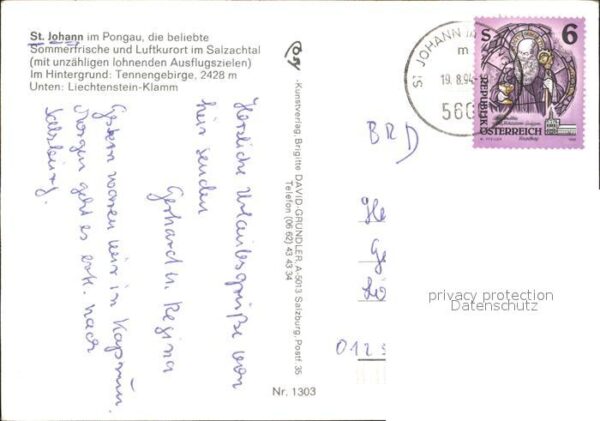 St. Johann im Pongau, die beliebte
Sommerfrische und Luftkurort im Salzachtal
(mit unzähligen lohnenden Ausflugszielen)
Im Hintergrund: Tennengebirge, 2428 m
Unten: Liechtenstein-Klamm
Herzliche Urlaubsgrüße von
hier senden
Gerhard u. Regina
Gestern waren wir in Kaprun.
Morgen geht es evtl. nach
Salzburg.
-Kunstverlag Brigitte DAVID-GRÜNDLER, A-5013 Salzburg, Postf. 35
Telefon (06 62) 43 43 34
Nr. 1303
ST. JOHANN IM
19.8.94
560
S 6
REPUBLIK
ÖSTERREICH
BRD
He
Ge
012
privacy protection
Datenschutz